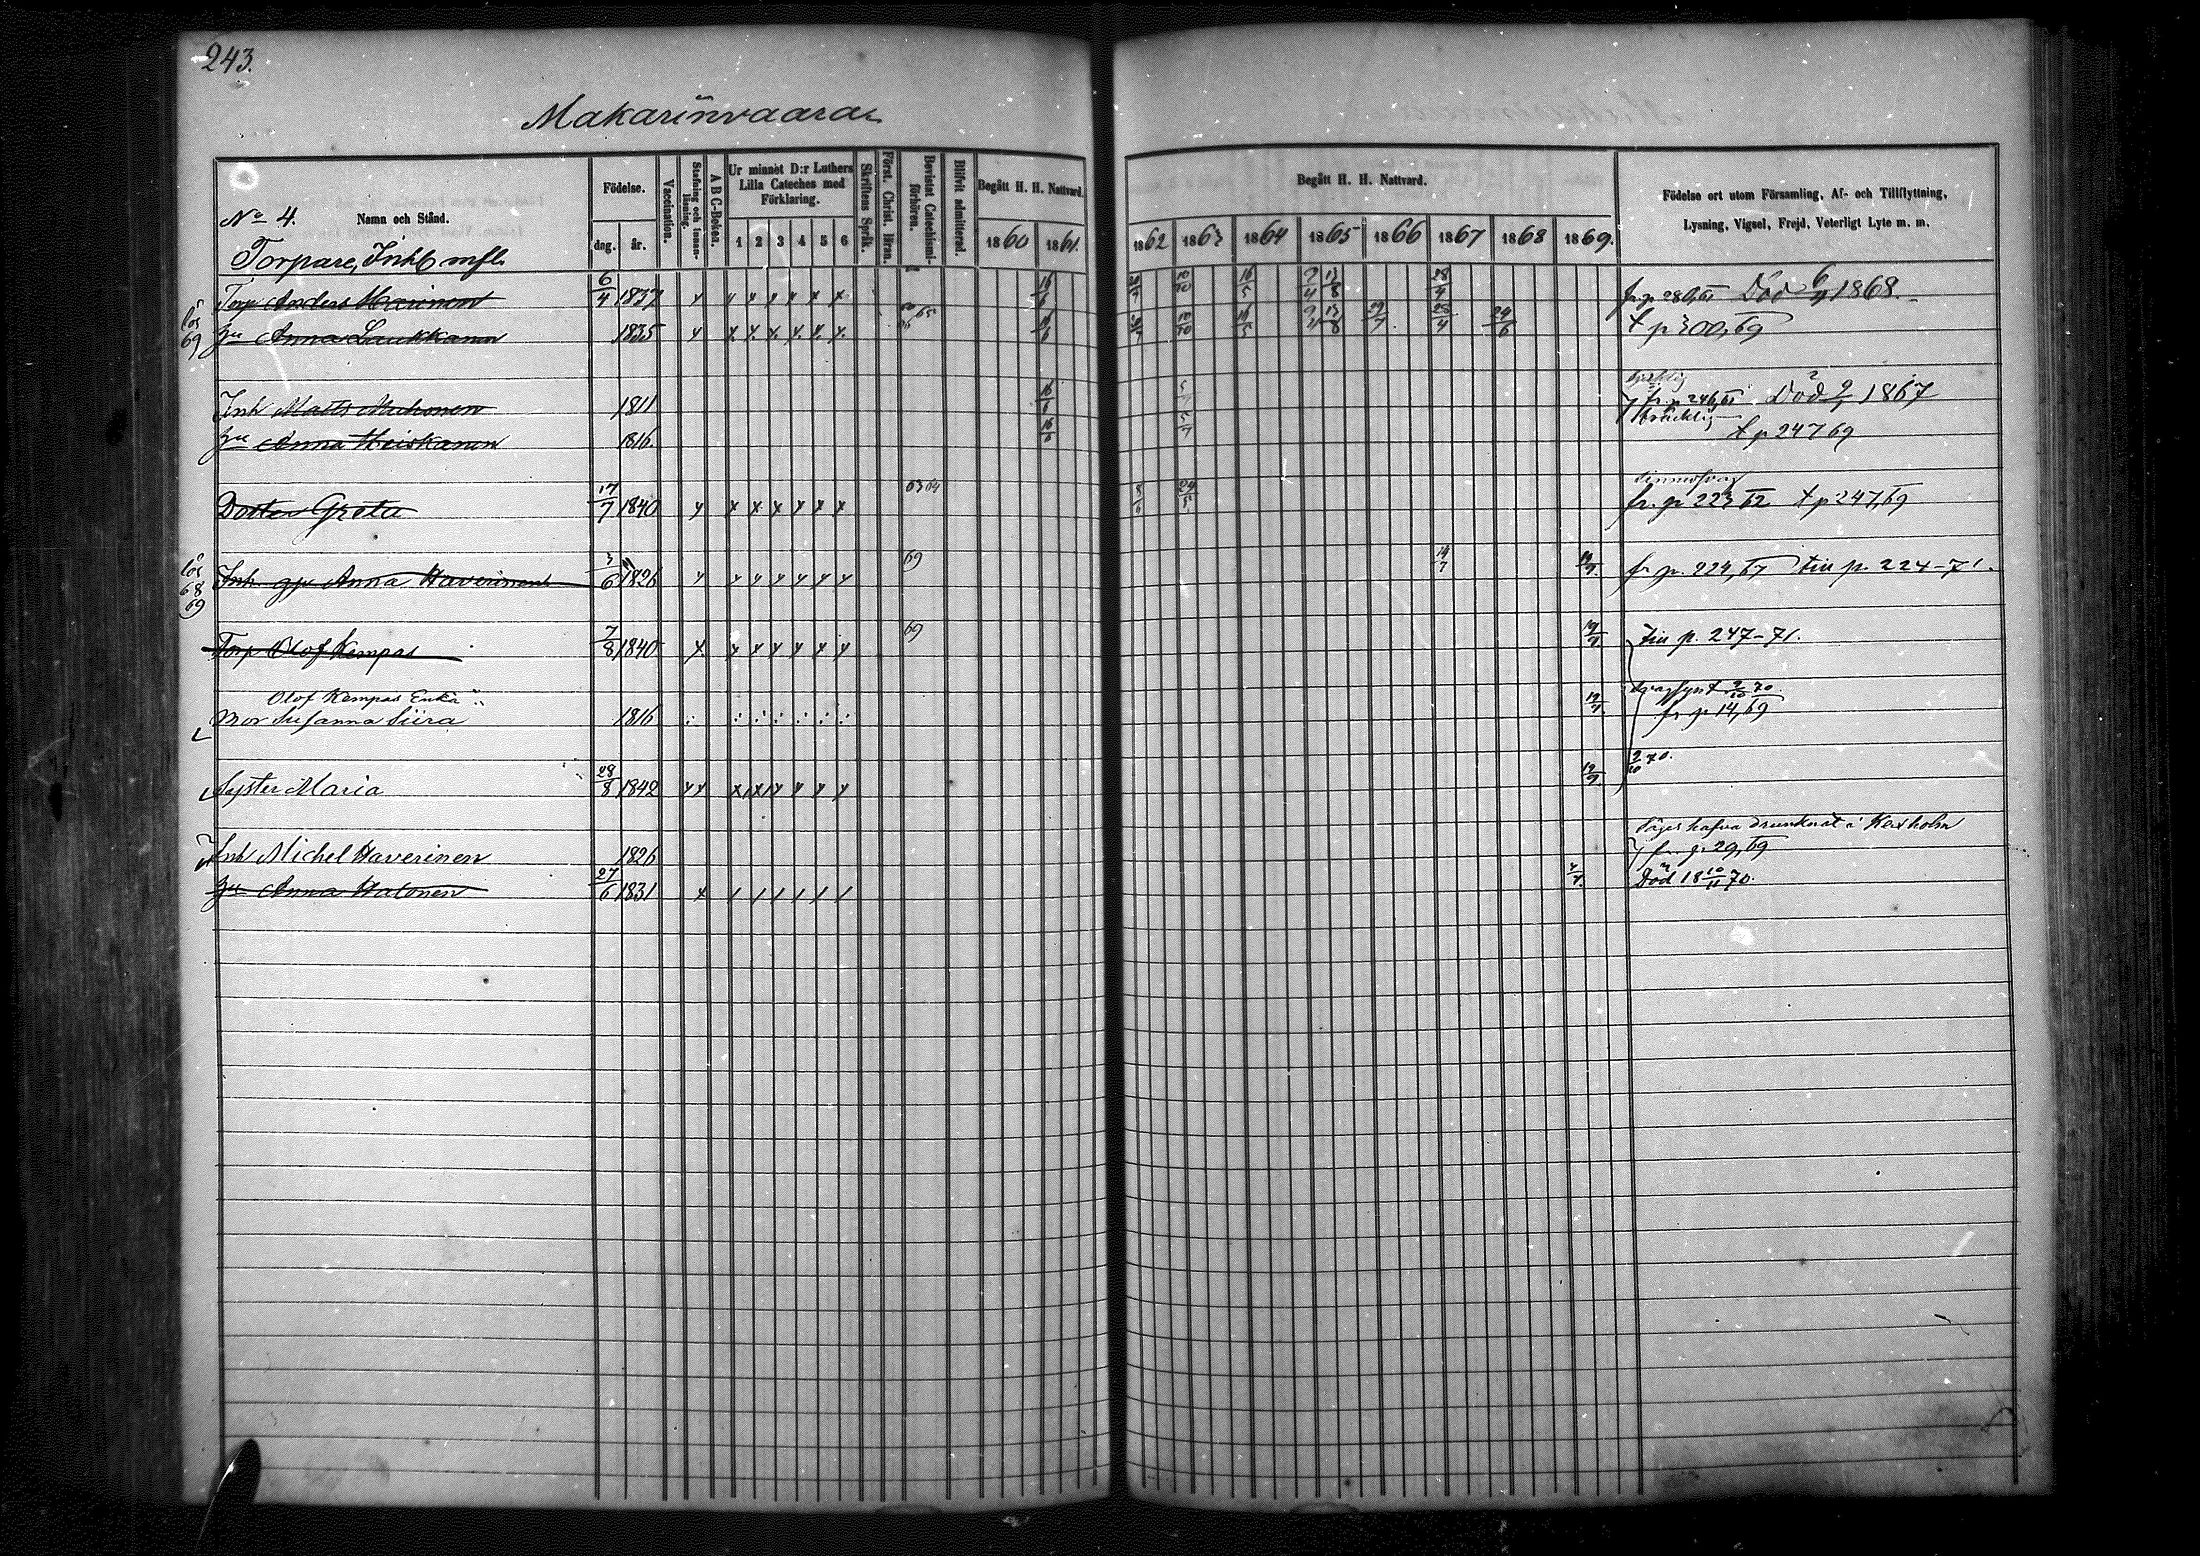 243.
Makarinvaara
Namn och Stånd.
Födelse.
dag. år.
Vaccination.
Stafning och innan-läsning.
A B C-Boken.
Ur minnet D:r Luthers Lilla Cateches med Förklaring.
1 2 3 4 5 6
Skriftens Språk.
Först. Christ. Hran.
Bevistat Catechismi-förhören.
Blifvit admitterad.
Begått H. H. Nattvard.
1860 1861
Begått H. H. Nattvard.
1862 1863 1864 1865 1866 1867 1868 1869.
Födelse ort utom Församling, Af- och Tillflyttning,
Lysning, Vigsel, Frejd, Veterligt Lyte m. m.
No 4
Torpare, Inh mfl.
Torp Anders 6/4 1837 Död 1868.
lös 69 hu Anna Laukkanen 1835 t p 300, 69
Inh Matts Muhonen 1811 fr. p 246, 61 Död 1867
bräcklig
hu Anna Heiskanen 1816 t p 247 69
Dotter Greta 17/7 1840 63 64 8/6 24/5 fr. p 223 62 t p 247, 69
lös 68 69 Inh. Anna Haverinen 1826 69 14/7 fr p. 224, 67 till p. 224-71.
Torp Olof Kempas 7/8 1840 69 19/9 till p. 247-71.
Olof Kempas Enka
Mor Susanna Siira 1816 19/9 fr p 14, 69
Syster Maria 28/8 1842 19/9 70.
Säges hafva drunknat i Kexholm
Inh Michel Haverinen 1826 fr. p. 29, 69
hu Anna Halonen 27/6 1831 Död 18 10/11 70.